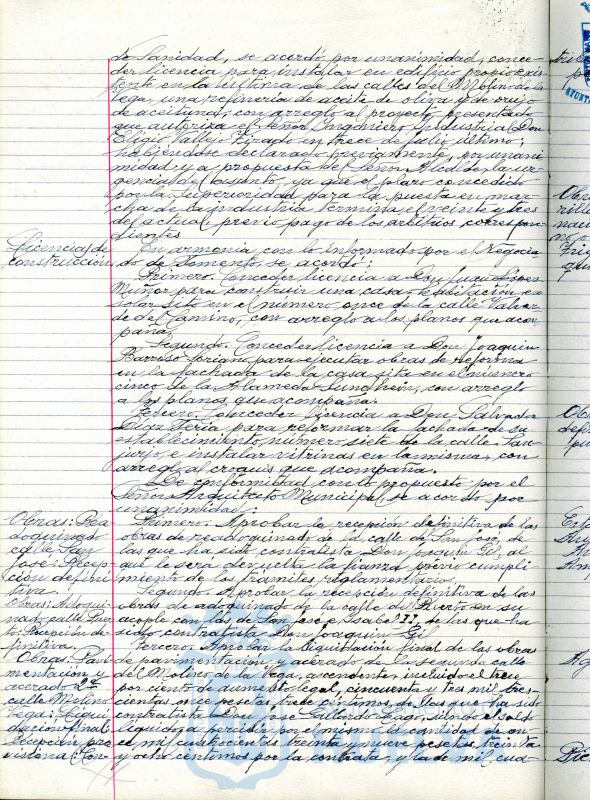 de Sanidad, se acordó por unanimidad, conce-
der licencia para instalar en edificio propio exis-
tente en la esquina de las calles del Molino de la
Vega, una refinería de aceite de oliva y de orujo
de aceituna, con arreglo al proyecto presentado
que autoriza el Señor Ingeniero Industrial Don
Eligio Vallejo Tirado en trece de julio último;
habiéndose declarado previamente, por unani-
midad y a propuesta del Señor Alcalde, la ur-
gencia del asunto, ya que el plazo concedido
por la Superioridad para la puesta en mar-
cha de la industria termina el veinte y tres
del actual, previo pago de los arbitrios correspon-
dientes.
Licencias de
construcción
En armonía con lo informado por el Negocia-
do de Fomento, se acordó:
Primero. Conceder licencia a Don José López
Muñoz para construir una casa habitación en
solar sito en el número once de la calle Valver-
de del Camino, con arreglo a los planos que acom-
paña.
Segundo. Conceder licencia a Don Joaquín
Barroso Soriano para ejecutar obras de reforma
en la fachada de la casa sita en el número
cinco de la Alameda Sundheim, con arreglo
a los planos que acompaña.
Tercero. Conceder licencia a Don Salvador
Díaz Feria para reformar la fachada de su
establecimiento, número siete de la calle San-
jurjo, e instalar vitrinas en la misma, con
arreglo al croquis que acompaña.
De conformidad con lo propuesto por el
Señor Arquitecto Municipal se acordó por
unanimidad:
Obras: Rea-
doquinado
calle San
José: Recep-
ción defini-
tiva.
Primero. Aprobar la recepción definitiva de las
obras de readoquinado de la calle de San José, de
las que ha sido contratista Don Joaquín Gil, al
que le será devuelta la fianza previo cumpli-
miento de los trámites reglamentarios.
Obras: Adoqui-
nado calle Puer-
to: Recepción de-
finitiva.
Segundo. Aprobar la recepción definitiva de las
obras de adoquinado de la calle del Puerto en su
acople con las de San José e Isabel II, de las que ha
sido contratista Don Joaquín Gil.
Obras: Pavi-
mentación y
acerado 2ª
calle Molino
Vega: Liqui-
dación final
Recepción pro-
visional: Con-
Tercero. Aprobar la liquidación final de las obras
de pavimentación y acerado de la segunda calle
del Molino de la Vega, ascendente, incluido el trece
por ciento de aumento legal, cincuenta y tres mil tres-
cientas once pesetas, trece céntimos, de las que ha sido
contratista Don José Gallardo Lago, siendo el saldo
líquido a percibir por el mismo la cantidad de on-
ce mil cuatrocientas treinta y nueve pesetas, treinta
y ocho céntimos por la contrata, y la de mil cua-